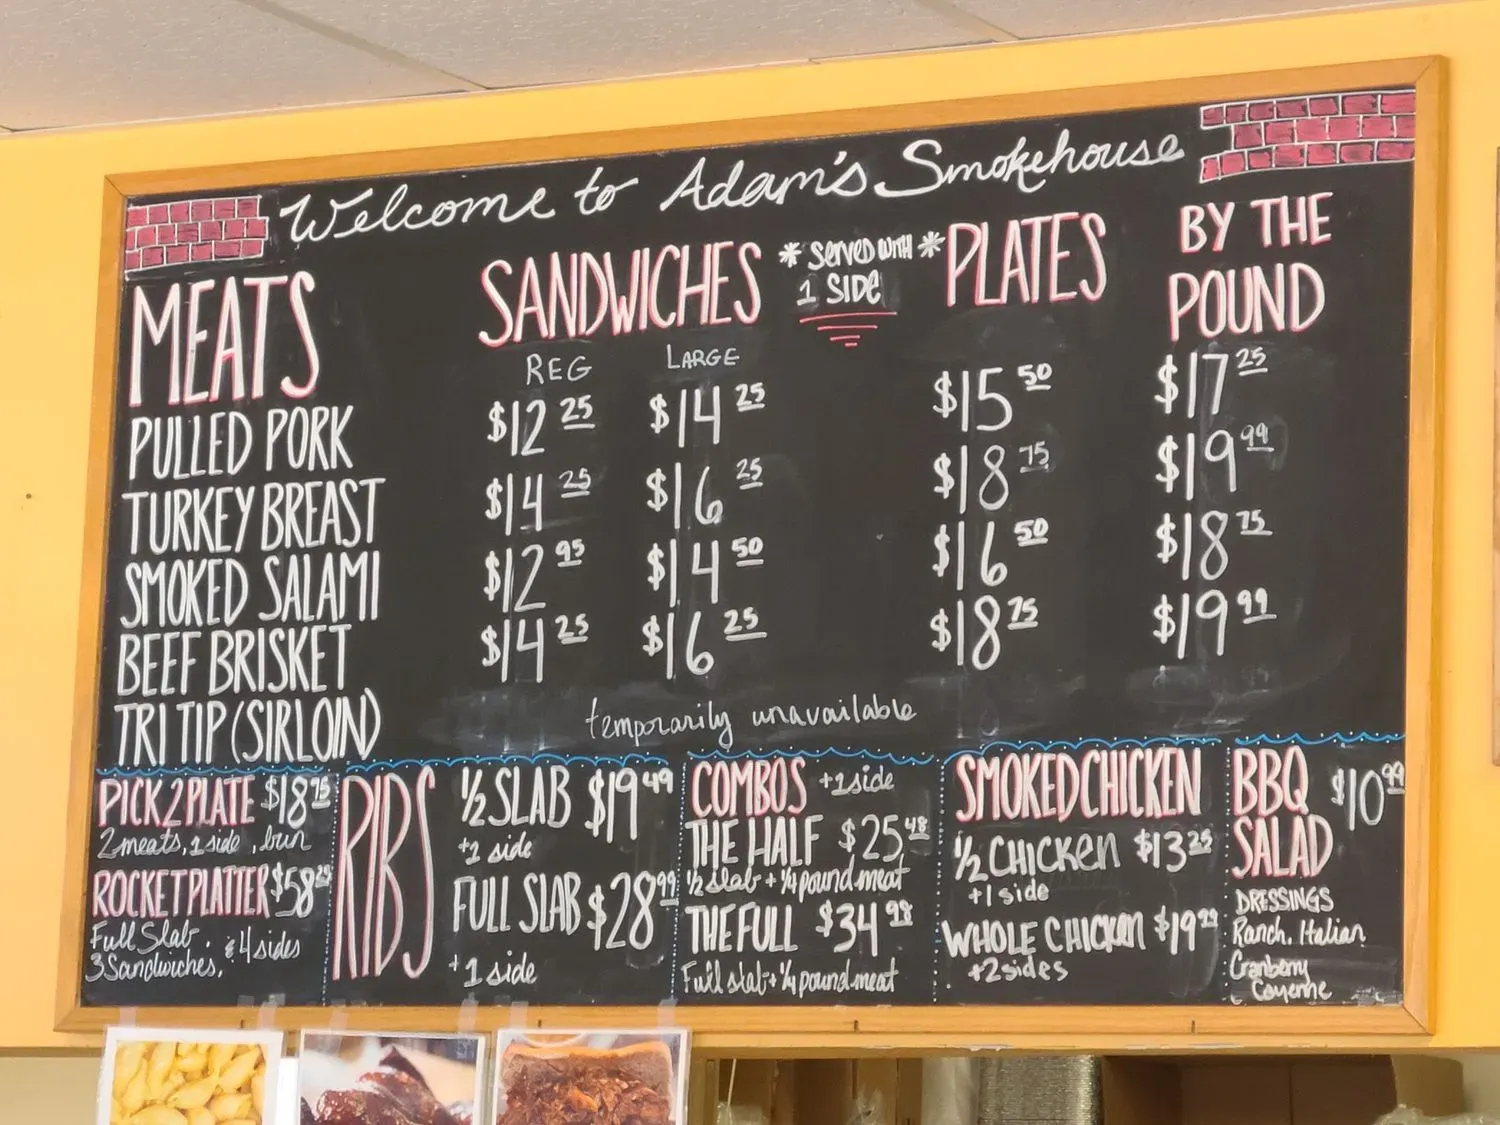 Welcome to Adam's Smokehouse
MEATS
SANDWICHES
* SERVED WITH *
1 SIDE
PLATES
BY THE
POUND
REG LARGE
PULLED PORK $12 25 $14 25 $15 50 $17 25
TURKEY BREAST $14 25 $16 25 $18 75 $19 99
SMOKED SALAMI $12 95 $14 50 $16 50 $18 75
BEEF BRISKET $14 25 $16 25 $18 75 $19 99
TRI TIP (SIRLOIN) temporarily unavailable
PICK 2 PLATE $18 75
2 meats, 1 side, bun
ROCKET PLATTER $58 25
Full Slab,
3 Sandwiches, & 4 sides
RIBS
1/2 SLAB $19 49
+1 side
FULL SLAB $28 99
+1 side
COMBOS +1 side
THE HALF $25 48
1/2 slab + 1/4 pound meat
THE FULL $34 98
Full slab + 1/4 pound meat
SMOKED CHICKEN
1/2 CHICKEN $13 25
+1 side
WHOLE CHICKEN $19 99
+2 sides
BBQ $10 99
SALAD
DRESSINGS
Ranch, Italian
Cranberry
Cayenne